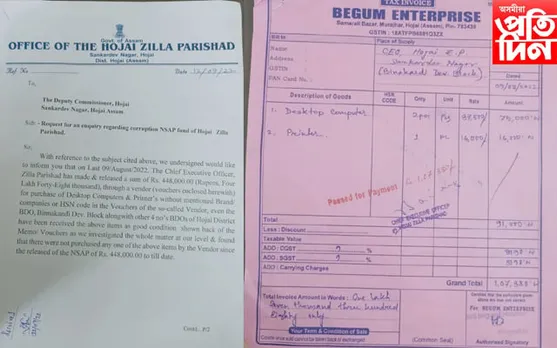 Govt. of Assam
OFFICE OF THE HOJAI ZILLA PARISHAD
Sankardev Nagar, Hojai
Dist. Hojai (Assam)
Ref No
Date
To,
The Deputy Commissioner, Hojai
Sankardev Nagar, Hojai Assam
Sub:- Request for an enquiry regarding corruption NSAP fund of Hojai Zilla
Parishad.
Sir,
With reference to the subject cited above, we undersigned would like
to inform you that on Last 09/August/2022. The Chief Executive Officer,
Zilla Parishad has made & released a sum of Rs. 448,000.00 (Rupees, Four
Lakh Forty-Eight thousand), through a vendor (vouchers enclosed herewith)
for purchase of Desktop Computers & Printer's without mentioned Brand/
companies or HSN code in the Vouchers of the so-called Vendor, even the
BDO, Binnakandi Dev. Block along with other 4 no's BDOs of Hojai District
have been received the above items as good condition shown back of the
Memo/ Vouchers as we investigated the whole matter at our level & found
that there were not purchased any one of the above items by the Vendor since
the released of the NSAP of Rs. 448,000.00 to till date.
Contd...P/2
অসমীয়া
প্রতিদিন
TAX INVOICE
BEGUM ENTERPRISE
Hojai (Assam), Pin- 782439
GSTIN :
Bill to
Place of Supply
Name
CEO, Hojai Z.P
Address
Sankardev Nagar
GSTIN
(Binakandi Dev. Block)
PAN Card No.
Dated
Description of Goods
HSN CODE
Qnty
Unit
Rate
Amount
1. Desktop Computer
2. Printer
Passed for Payment
CHIEF EXECUTIVE OFFICER
HOJAI ZILLA PARISHAD
Total
Less : Discount
91,000
Taxable Value
ADD : CGST 9 %
8190
ADD : SGST 9 %
8190
ADD : Carrying Charges
Grand Total
1,07,380
Total Invoice Amount in Words : One lakh
Seven thousand three hundred
Eighty only
Your Term & Condition of Sale
(Common Seal)
For BEGUM ENTERPRISE
Authorised Signatory